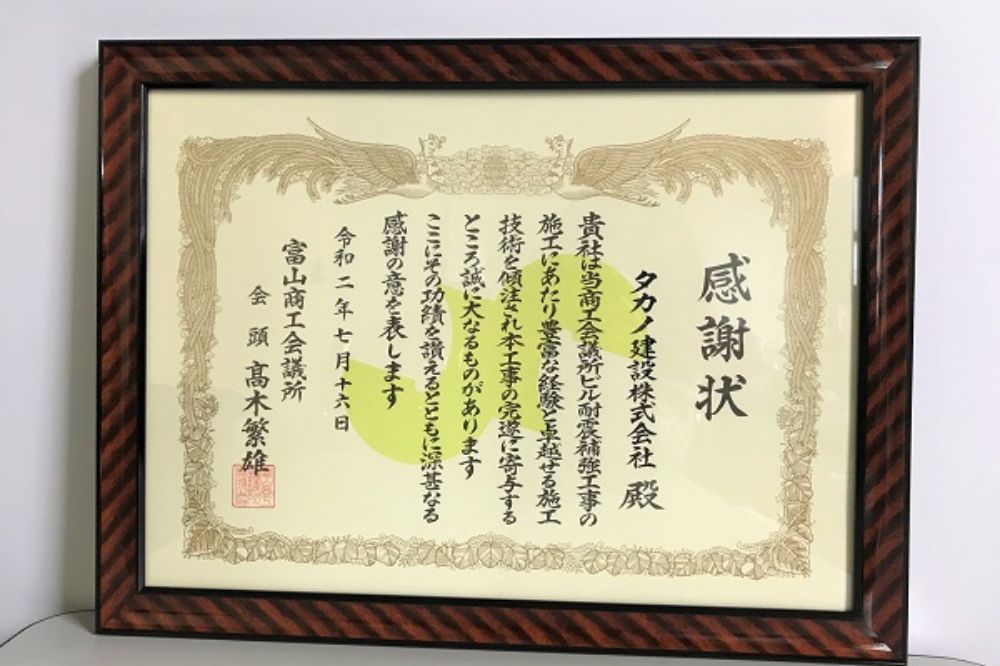 感謝状
タカノ建設株式会社 殿
貴社は当商工会議所ビル耐震補強工事の
施工にあたり豊富な経験と卓越せる施工
技術を傾注され本工事の完遂に寄与する
ところ誠に大なるものがあります
ここにその功績を讃えるとともに深甚なる
感謝の意を表します
令和二年七月十六日
富山商工会議所
会頭 髙木繁雄